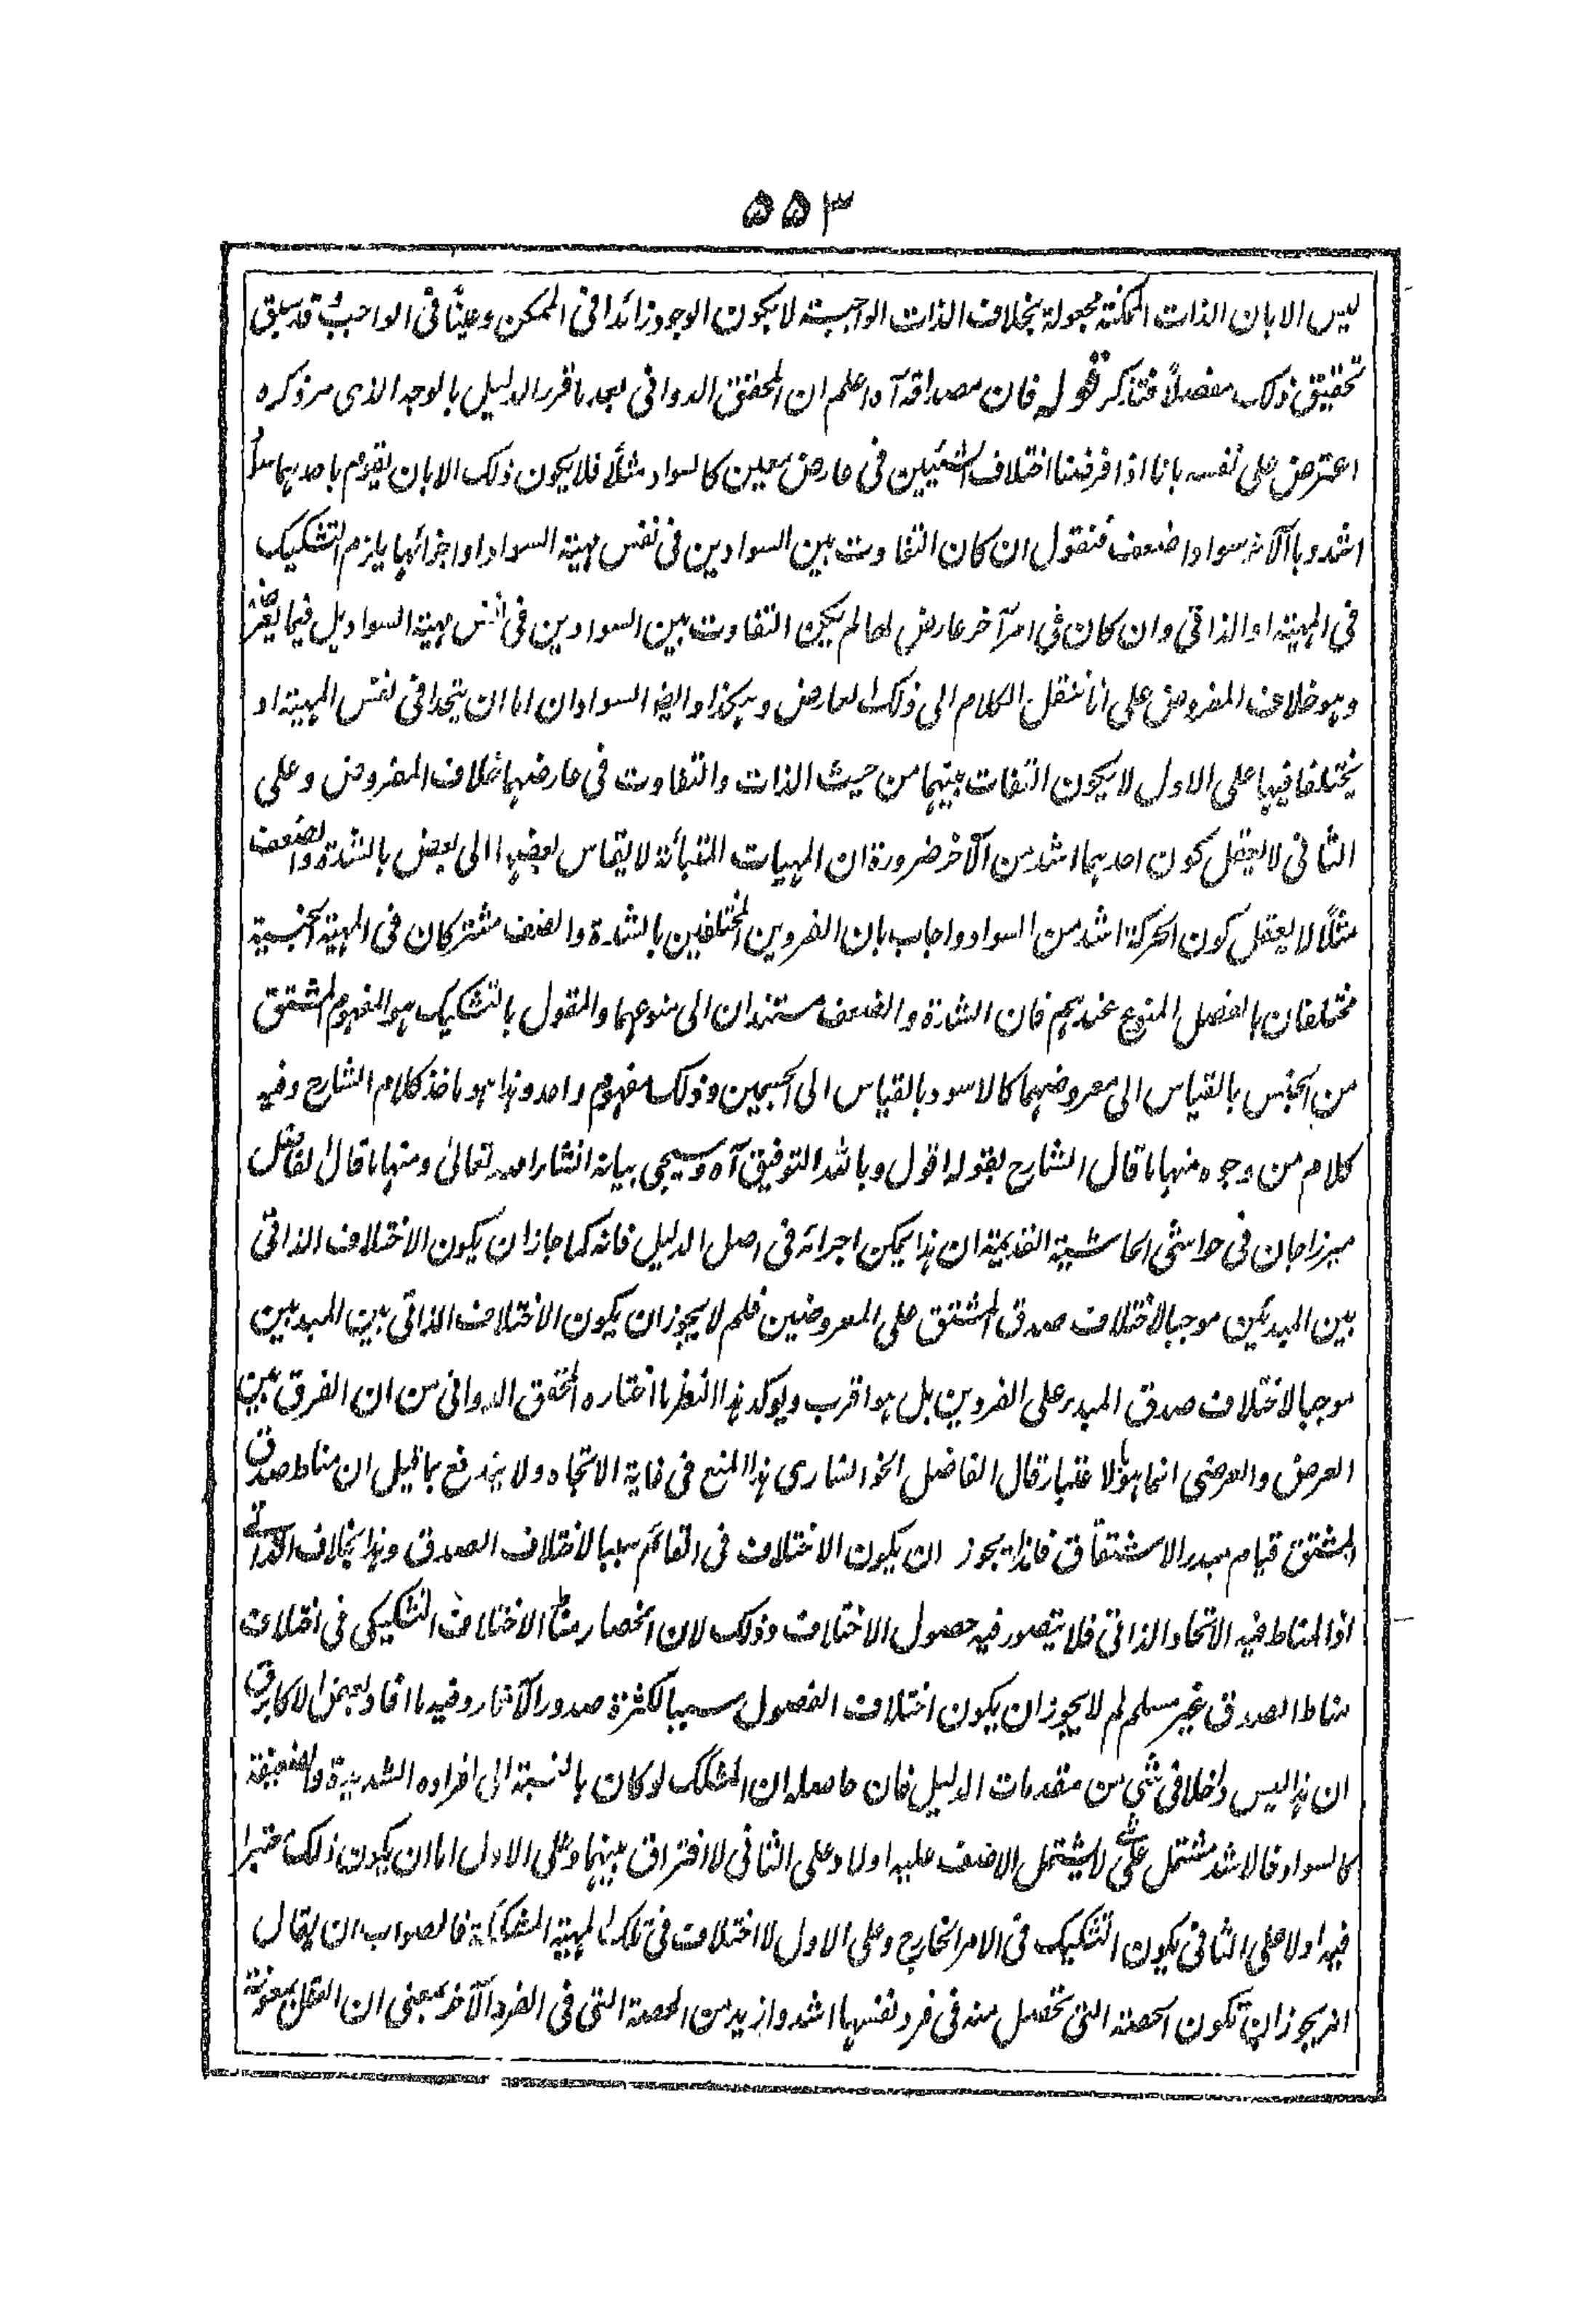 ٥٥٣
ليس الا بان الذات الممكنة مجعولة بخلاف الذات الواجبة لا بكون الوجود زائدا فى الممكن وعينًا فى الواجب وقد سبق
تحقيق ذلك مفصلاً فتذكر قوله فان مصداقه آه اعلم ان المحقق الدوانى بعد ما قرر الدليل بالوجه الذى مر ذكره
اعترض على نفسه بانا اذا فرضنا اختلاف الشيئين فى عارض معين كالسواد مثلًا فلا يكون ذلك الا بان يقوم باحدهما سواد
اشد وبالآخر سواد اضعف فنقول ان كان التفاوت بين السوادين فى نفس مهية السواد او اجزائها يلزم التشكيك
فى المهية او الذاتى وان كان فى امر آخر عارض لها لم يكن التفاوت بين السوادين فى نفس مهية السواد بل فيما
وهو خلاف المفروض على انا ننقل الكلام الى ذلك العارض وهكذا وايضا السوادان اما ان يتحدا فى نفس المهية او
يختلفا فيها على الاول لا يكون التفات بينهما من حيث الذات والتفاوت فى عارضهما خلاف المفروض وعلى
الثانى لا يعقل كون احدهما اشد من الآخر ضرورة ان المهيات المتبائنة لا يقاس بعضها الى بعض بالشدة والضعف
مثلًا لا يعقل كون الحركة اشد من السواد واجاب بان الفردين المختلفين بالشدة والضعف مشتركان فى المهية الجنسية
مختلفان بالفصل المنوع عندهم فان الشدة والضعف مستندان الى منوعهما والمقول بالتشكيك هو المفهوم المشتق
من الجنس بالقياس الى معروضهما كالاسود بالقياس الى الجسمين وذلك مفهوم واحد وهذا هو ماخذ كلام الشارح وفيه
كلام من وجوه منها ما قال الشارح بقوله اقول وبالله التوفيق آه وسيجى بيانه انشاء الله تعالىٰ ومنها ما قال الفاضل
ميرزاجان فى حواشى الحاشية القديمة ان هذا يمكن اجرائه فى اصل الدليل فانه كما جاز ان يكون الاختلاف الذاتى
بين المبدئين موجبا لاختلاف صدق المشتق على المعروضين فلم لا يجوز ان يكون الاختلاف الذاتى بين المبدئين
موجبا لاختلاف صدق المبدء على الفردين بل هو اقرب ويوكد هذا النظر ما اختاره المحقق الدوانى من ان الفرق بين
العرض والعرضى انما هو بالاعتبار قال الفاضل الخوانسارى هذا المنع فى غاية الاتجاه ولا يندفع بما قيل ان مناط صدق
المشتق قيام مبدء الاشتقاق فاذا يجوز ان يكون الاختلاف فى القائم سببا لاختلاف الصدق وهذا بخلاف الذاتى
اذ المناط فيه الاتحاد الذاتى فلا يتصور فيه حصول الاختلاف وذلك لان انحصار منشأ الاختلاف التشكيكى فى اختلاف
مناط الصدق غير مسلم لم لا يجوز ان يكون اختلاف الفصول سببا لكثرة صدور الآثار وفيه ما افاد بعض الاكابر ق
ان هذا ليس داخلا فى شى من مقدمات الدليل فان حاصله ان المشكك لو كان بالنسبة الى افراده الشديدة والضعيفة
كالسواد فالاشد مشتمل على شے لا يشتمل الاضعف عليه اولا وعلى الثانى لا افتراق بينهما وعلى الاول اما ان يكون ذلك معتبرا
فيه او لا على الثانى يكون التشكيك فى الامر الخارج وعلى الاول لا اختلاف فى تلك المهية المشككة فالصواب ان يقال
انه يجوز ان تكون الحصة التى تحصل منه فى فرد نفسها اشد وازيد من الحصة التى فى الفرد الآخر بمعنى ان العقل بمعونة